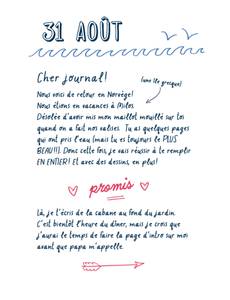 31 AOÛT
Cher journal!
(une île grecque)
Nous voici de retour en Norvège!
Nous étions en vacances à Milos.
Désolée d'avoir mis mon maillot mouillé sur toi
quand on a fait nos valises. Tu as quelques pages
qui ont pris l'eau (mais tu es toujours le PLUS
BEAU!!!). Donc cette fois, je vais réussir à te remplir
EN ENTIER! Et avec des dessins, en plus!
promis
Là, je t'écris de la cabane au fond du jardin.
C'est bientôt l'heure du dîner, mais je crois que
j'aurai le temps de faire la page d'intro sur moi
avant que papa m'appelle.